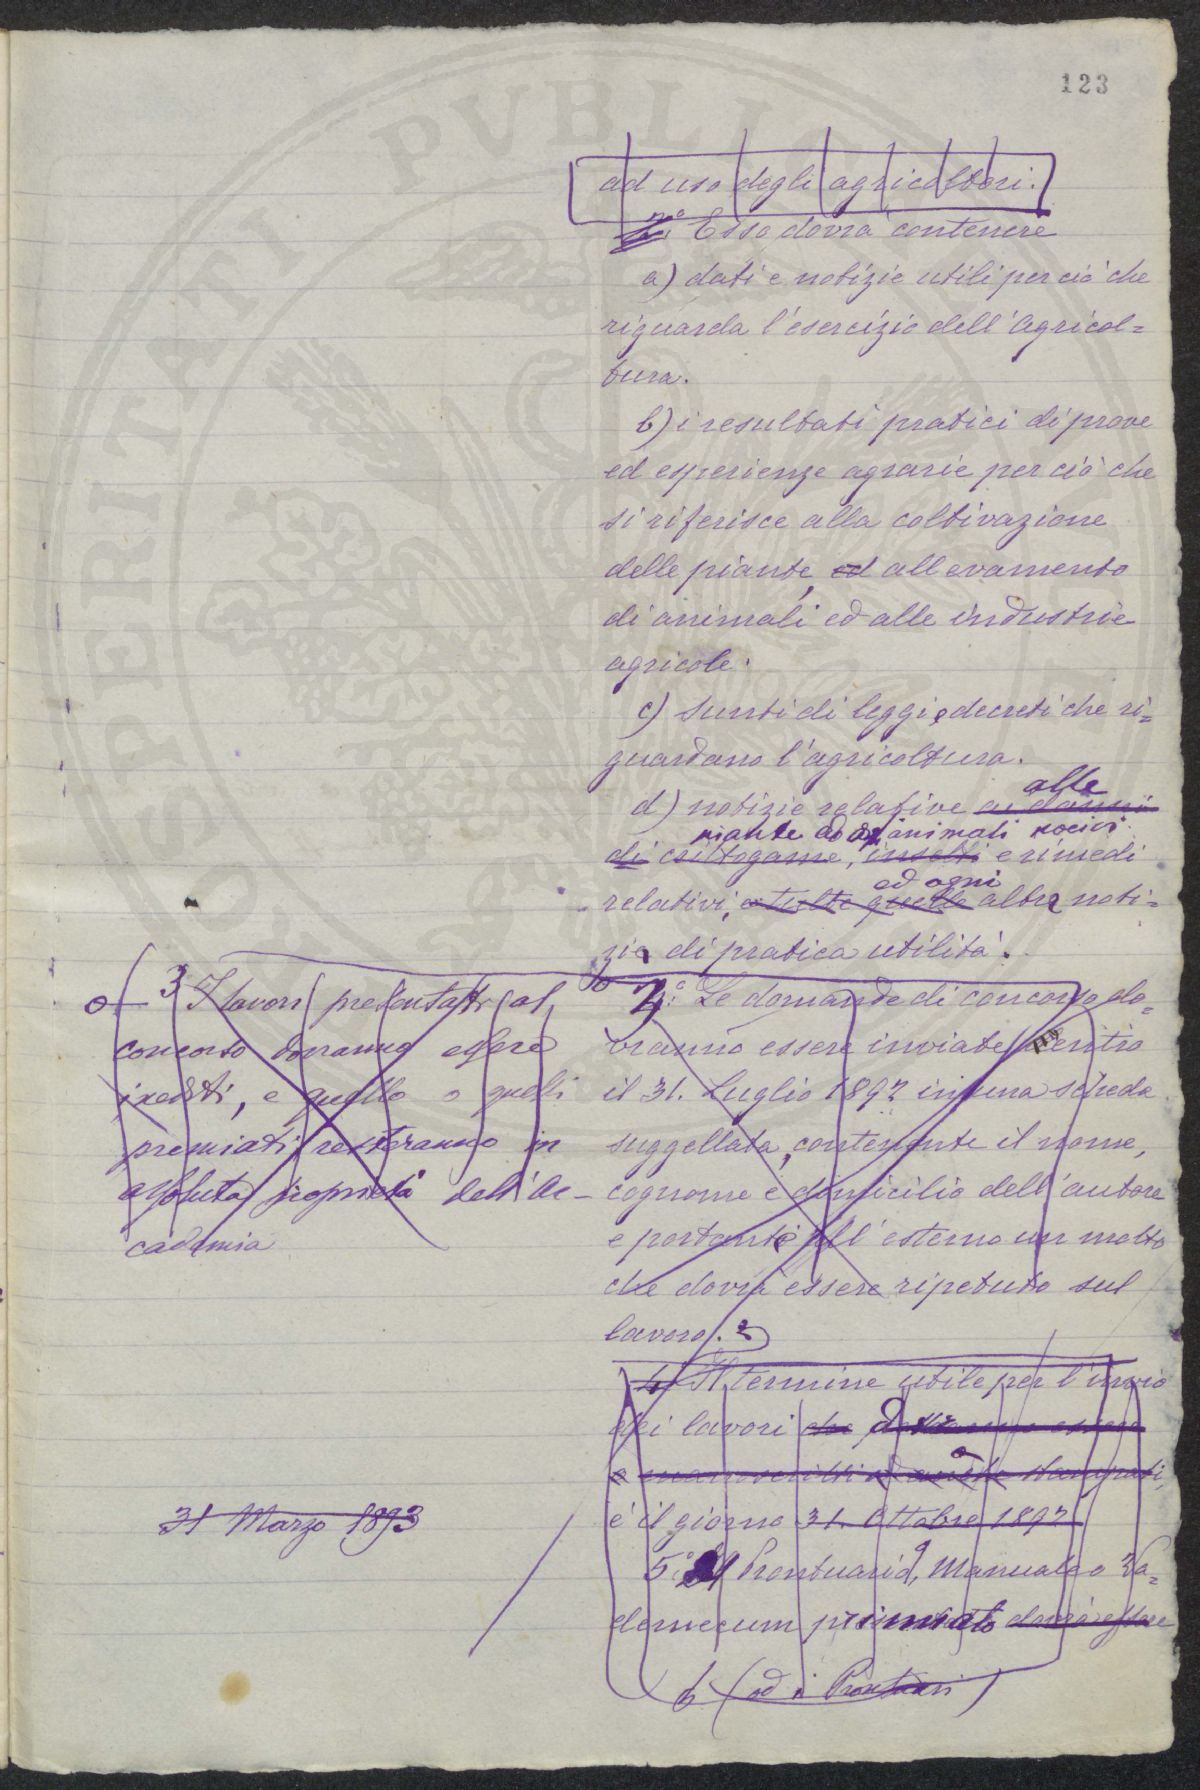 123
ad uso degli agricoltori.
2º Esso dovrà contenere
a) dati e notizie utili per ciò che
riguarda l'esercizio dell'Agricol=
tura.
b) i resultati pratici di prove
ed esperienze agrarie per ciò che
si riferisce alla coltivazione
delle piante, ed allevamento
di animali ed alle industrie
agricole.
c) Sunti di leggi e decreti che ri=
guardano l'agricoltura.
alle
d) notizie relative ai danni
piante ad animali nocivi
di crittogame, insetti e rimedi
ed ogni
relativi, e tutte quelle altre noti=
zie di pratica utilità.
3º Le domande di concorso do=
vranno essere inviate entro
il 31. Luglio 1892 in una scheda
suggellata, contenente il nome,
cognome e domicilio dell'autore
e portante all'esterno un motto
che dovrà essere ripetuto sul
lavoro.
4º Il termine utile per l'invio
dei lavori che dovranno essere
e manoscritti ed anche stampati,
è il giorno 31. Ottobre 1892
5º Il Prontuario, Manuale o Va=
demecum premiato dovrà essere
(od i Prontuari)
3º I lavori presentati al
concorso dovranno essere
inediti, e quello o quelli
premiati resteranno in
assoluta proprietà dell'Ac-
cademia
31 Marzo 1893
PROSPERITATI PVBLICAE